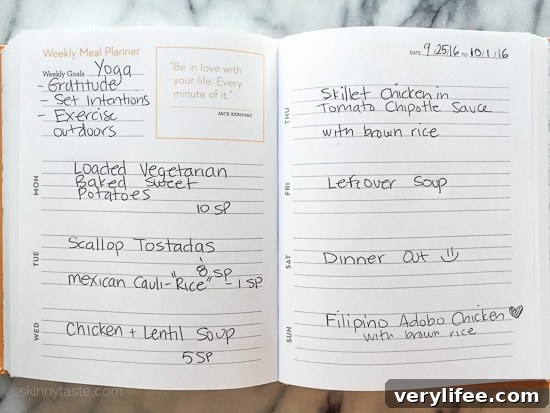 Weekly Meal Planner
Weekly Goals Yoga
- Gratitude
- Set Intentions
- Exercise
outdoors
"Be in love with
your life. Every
minute of it."
JACK KEROUAC
MON
Loaded Vegetarian
Baked Sweet
Potatoes
10 SP
TUE
Scallop Tostadas
8 SP
mexican Cauli-"Rice" - 1 SP
WED
Chicken + Lentil Soup
5 SP
skinnytaste.com
DATE 9/25/16 TO 10/1/16
THU
Skillet Chicken in
Tomato Chipotle Sauce
with brown rice
FRI
Leftover Soup
SAT
Dinner Out
SUN
Filipino Adobo Chicken
with brown rice
verylifee.com